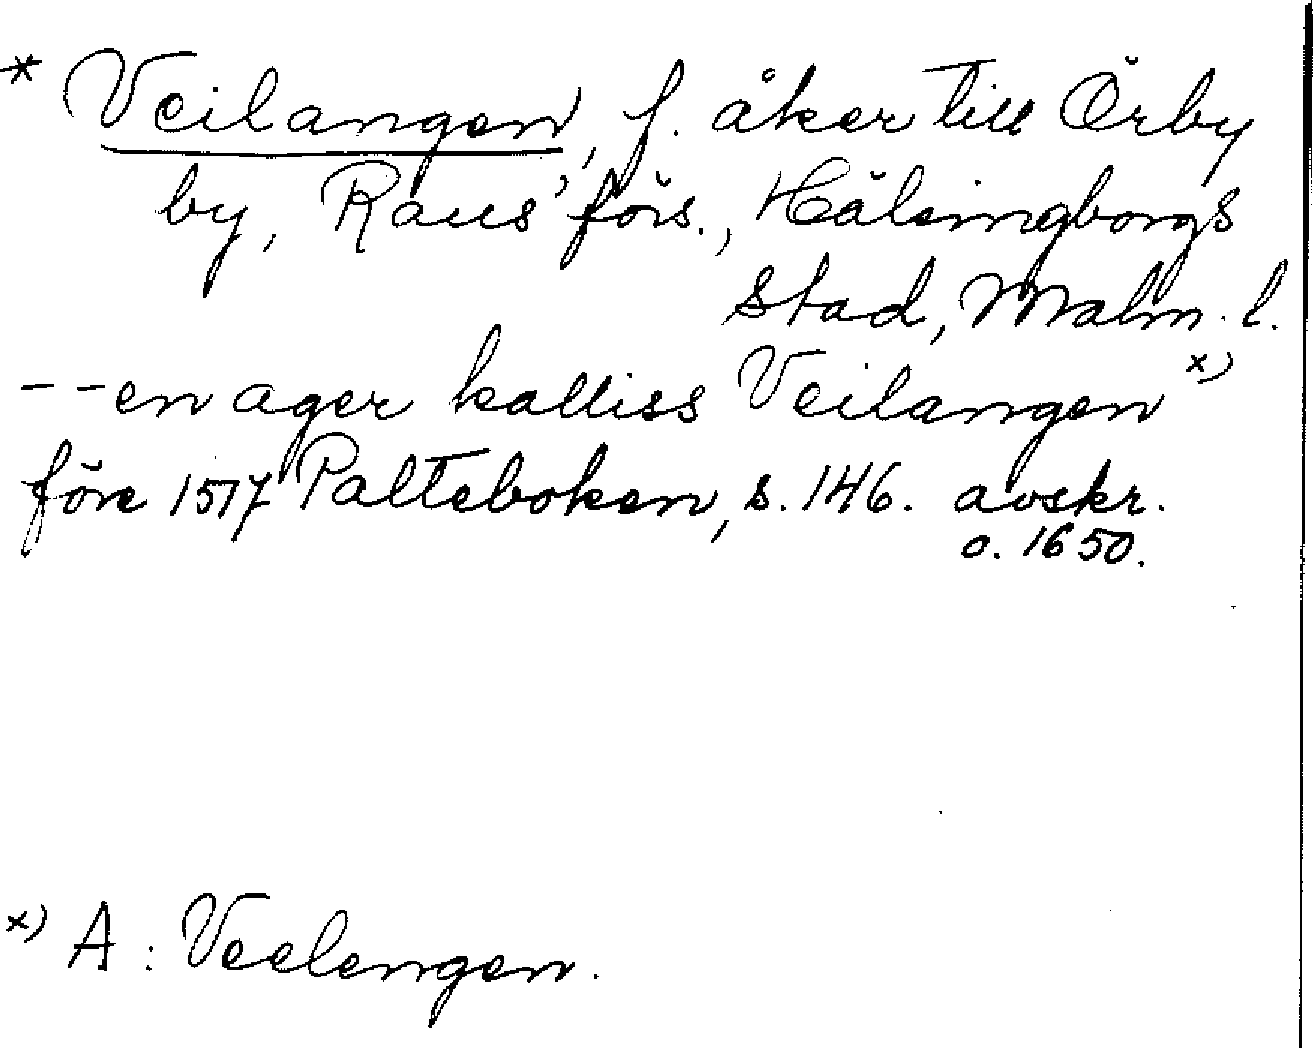 * Veilangen, f. åker till Örby
by, Raus' förs., Hälsingborgs
stad, Malm. l.
-- en ager kalliss Veilangen x)
före 1517 Palteboken, s. 146. avskr.
o. 1650.
x) A: Veelengen.